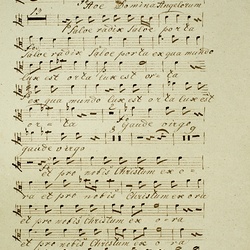 Ave Domina Angelorum
Salve radix Salve porta
Salve radix Salve porta ex qua mundo
lux est orta lux est or=ta
ex qua mundo lux est orta lux est
or=ta gaude virgo
gaude virgo
et pro nobis Christum ex o=
ra et pro nobis Christum ex ora
et pro nobis Christum ex o=ra
et pro nobis Christum ex ora